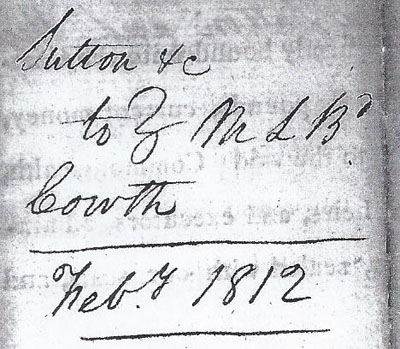 Sutton &c
to } M L Bd
Cowth
Feby 1812